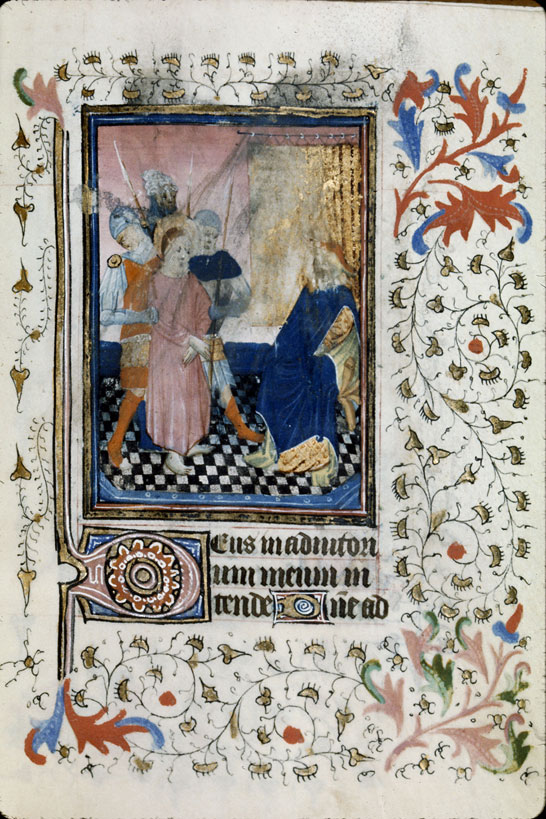 Deus in adiutori
um meum in
tende Dñe ad